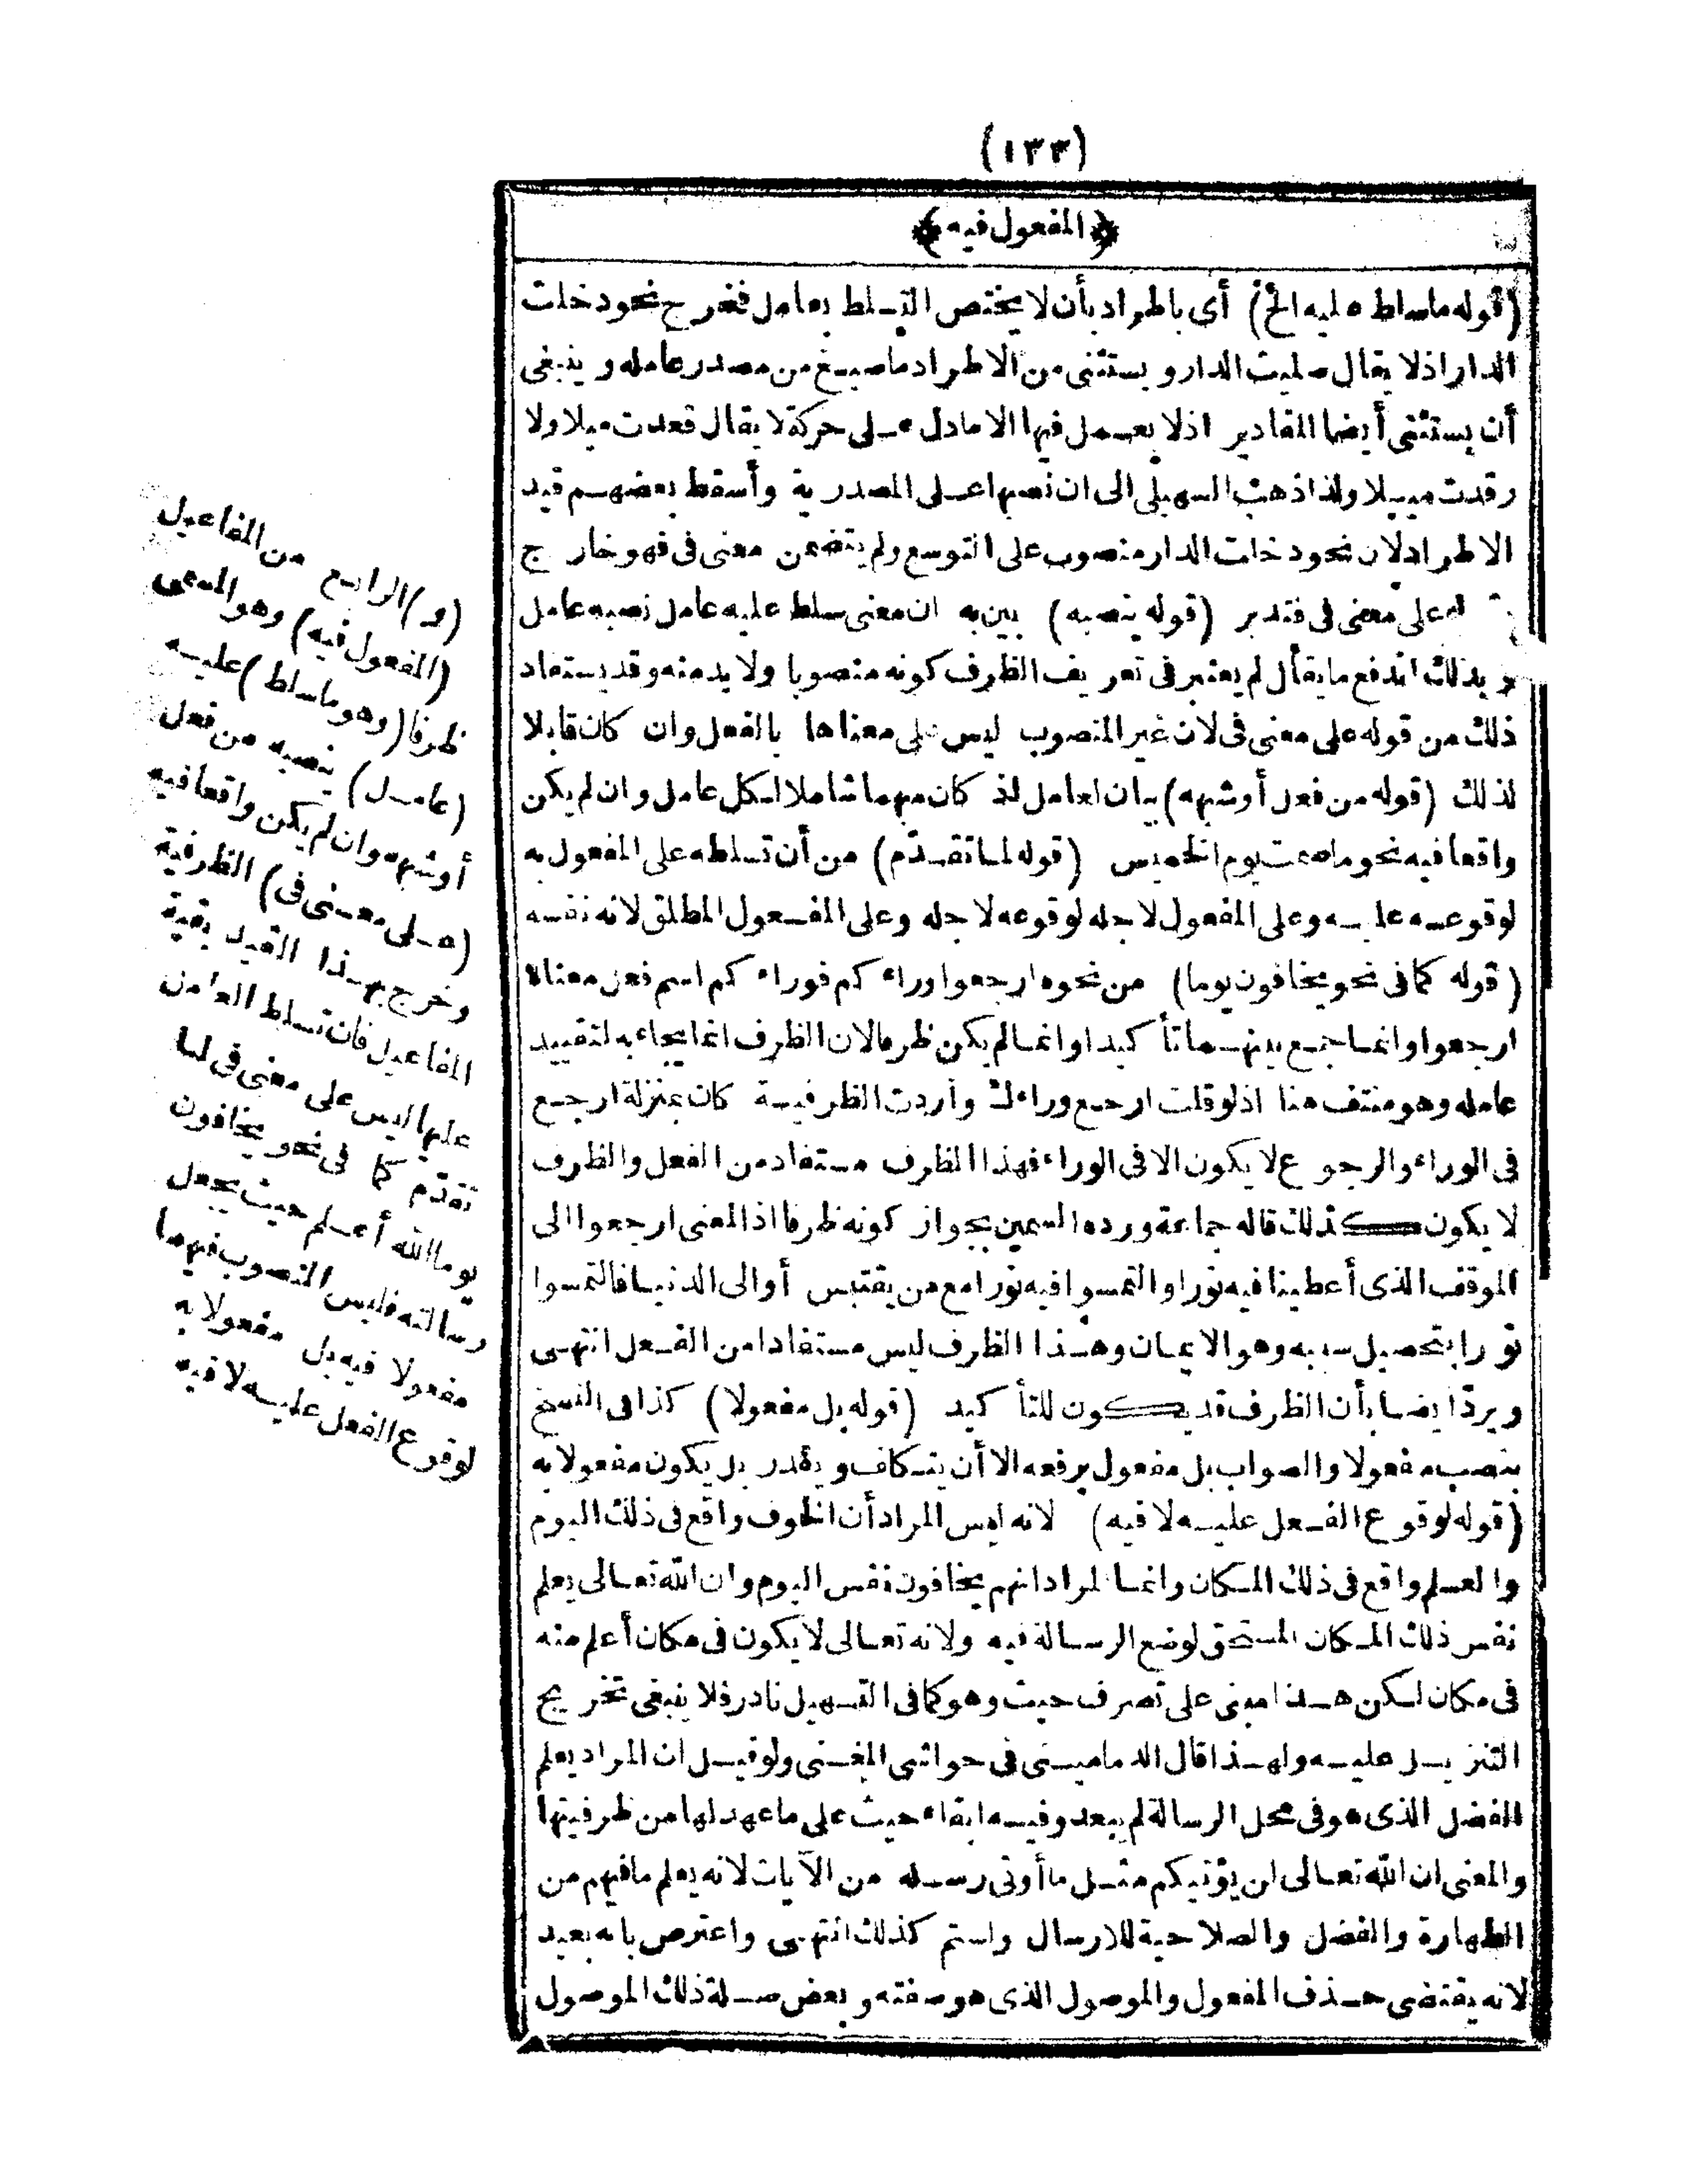 (١٣٣)
﴿المفعول فيه﴾
(قوله ما سلط عليه الخ) أى باطراد بأن لا يختص التسلط بعامل فخرج نحو دخلت
الدار اذ لا يقال صليت الدار ويستثنى من الاطراد ما صيغ من مصدر عامله وينبغى
أن يستثنى أيضا المقادير اذ لا يعمل فيها الا ما دل على حركة لا يقال قعدت ميلا ولا
رقدت ميلا ولذا ذهب السهيلى الى ان نصبها على المصدرية وأسقط بعضهم قيد
الاطراد لان نحو دخلت الدار منصوب على التوسع ولم يتضمن معنى فى فهو خارج
على معنى فى فتدبر (قوله ينصبه) بين به ان معنى سلط عليه عامل نصبه عامل
وبذلك اندفع ما يقال لم يعتبر فى تعريف الظرف كونه منصوبا ولا بد منه وقد يستفاد
ذلك من قوله على معنى فى لان غير المنصوب ليس على معناها بالفعل وان كان قابلا
لذلك (قوله من فعل أو شبهه) بيان لعامل لذ كان مبهما شاملا لكل عامل وان لم يكن
واقعا فيه نحو ما صمت يوم الخميس (قوله لما تقدّم) من أن تسلطه على المفعول به
لوقوعه عليه وعلى المفعول لاجله لوقوعه لاجله وعلى المفعول المطلق لانه نفسه
(قوله كما فى نحو يخافون يوما) من نحوه ارجعوا وراءكم فوراءكم اسم فعل معناه
ارجعوا وانما جمع بينهما تأكيدا وانما لم يكن ظرفا لان الظرف انما يجاء به لتقييد
عامله وهو منتف هنا اذ لو قلت ارجع وراءك وأردت الظرفية كان بمنزلة ارجع
فى الوراء والرجوع لا يكون الا فى الوراء فهذا الظرف مستفاد من الفعل والظرف
لا يكون كذلك قاله جماعة ورده السمين بجواز كونه ظرفا اذ المعنى ارجعوا الى
الموقف الذى أعطينا فيه نورا والتمسوا فيه نورا مع من يقتبس أو الى الدنيا فالتمسوا
نورا بتحصيل سببه وهو الايمان وهذا الظرف ليس مستفادا من الفعل انتهى
ويردّ ايضا بأن الظرف قد يكون للتأكيد (قوله بل مفعولا) كذا فى النسخ
بنصب مفعولا والصواب بل مفعول برفعه الا أن يتكلف ويقدر بل يكون مفعولا به
(قوله لوقوع الفعل عليه لا فيه) لانه ليس المراد أن الخوف واقع فى ذلك اليوم
والعلم واقع فى ذلك المكان وانما المراد انهم يخافون نفس اليوم وان الله تعالى يعلم
نفس ذلك المكان المستحق لوضع الرسالة فيه ولانه تعالى لا يكون فى مكان أعلم منه
فى مكان لكن هذا مبنى على تصرف حيث وهو كما فى التسهيل نادر فلا ينبغى تخريج
التنزيل عليه ولهذا قال الدمامينى فى حواشى المغنى ولو قيل ان المراد يعلم
الفضل الذى هو فى محل الرسالة لم يبعد وفيه ابقاء حيث على ما عهد لها من ظرفيتها
والمعنى ان الله تعالى لن يؤتيكم مثل ما أوتى رسله من الآيات لانه يعلم ما فيهم من
الطهارة والفضل والصلاحية للارسال ولستم كذلك انتهى واعترض بانه بعيد
لانه يقتضى حذف المفعول والموصول الذى هو صفته وبعض صلة ذلك الموصول
(و) الرابع من المفاعيل
(المفعول فيه) وهو المسمى
ظرفا (وهو ما سلط) عليه
(عامل) ينصبه من فعل
أو شبهه وان لم يكن واقعا فيه
(على معنى فى) الظرفية
وخرج بهذا القيد بقية
المفاعيل فان تسلط العامل
عليها ليس على معنى فى لما
تقدّم كما فى نحو يخافون
يوما الله أعلم حيث يجعل
رسالته فليس المنصوب فيهما
مفعولا فيه بل مفعولا به
لوقوع الفعل عليه لا فيه